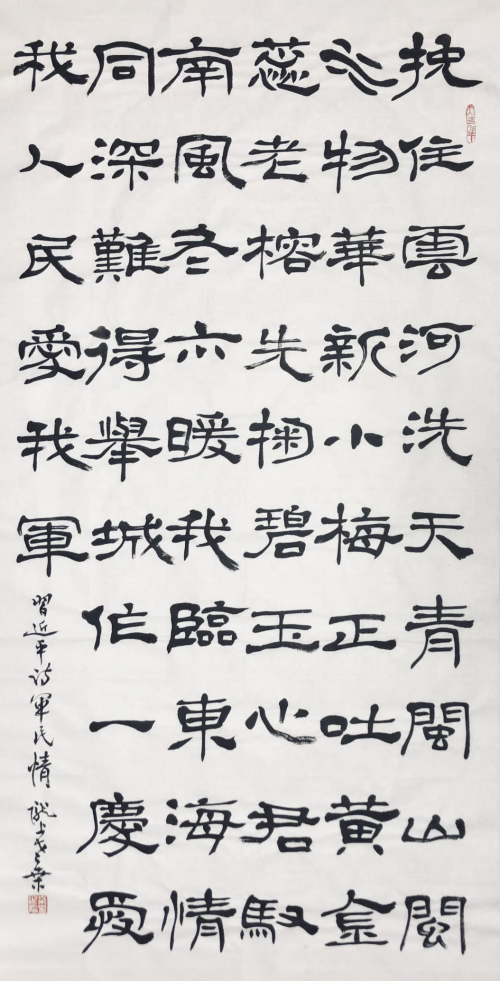 挽住雲河洗天青閩山閩
水物華新小梅正吐黄金
蕊老榕先掬碧玉心君馭
南風冬亦暖我臨東海情
同深難得舉城作一慶愛
我人民愛我軍
習近平詩軍民情